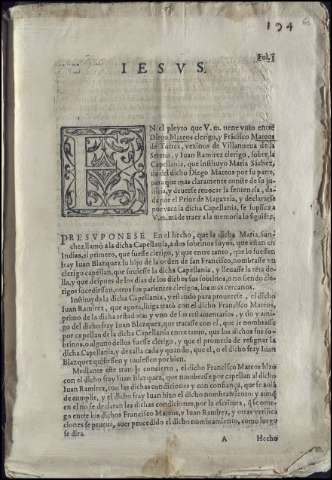 194
Fol. 1
IESVS.
EN el pleyto que V. m. tiene visto entre
Diego Mateos clerigo, y Frãcisco Mateos
de Yañez, vezinos de Villanueua de la
Serena, y Iuan Ramirez clerigo, sobre la
Capellania, que instituyo Maria Sãchez,
tia del dicho Diego Mateos por su parte,
para que mas claramente conste de su ju-
sticia, y deuerse reuocar la sentencia, da-
da por el Prior de Magazela, y declararse
por vaca la dicha Capellania, se suplica a
V. m. mãde traer a la memoria lo siguiẽte.
PRESVPONESE En el hecho, que la dicha Maria San-
chez llamò a la dicha Capellania, a dos sobrinos suyos, que estan en
Indias, al primero, que fuesse clerigo, y que entre tanto, que lo fuessen
fray Iuan Blazquez su hijo de la orden de san Francisco, nombrasse vn
clerigo capellan, que siruiesse la dicha Capellania, y lleuasse la rẽta de-
lla, y que despues de los dias de los dichos sus sobrinos, o no siendo cle-
rigos sucediessen, otros sus parientes clerigos, los mas cercanos.
Instituyda la Capellania, y estando para proueerse, el dicho
Iuan Ramirez, que agora litiga, tratò con el dicho Francisco Mateos,
primo de la dicha testadora y vno de los testamentarios, y tio y ami-
go del dicho fray Iuan Blazquez, que tratasse con el, que le nombrasse
por capellan de la dicha Capellania entre tanto, que los dichos sus so-
brinos, o alguno dellos fuesse clerigo, y que el prometia de resignar la
dicha Capellania, y dexalla cada y quando, que el, o el dicho fray Iuan
Blazquez quisiessen y tuuiessen por bien.
Mediante este trato, y concierto, el dicho Francisco Mateos hizo
con el dicho fray Iuan Blazquez, que nombrasse por capellan al dicho
Iuan Ramirez, con las dichas condiciones y con confiança, que se auiã
de cumplir, y el dicho fray Iuan hizo el dicho nombramiento: y aunq̃
en el no se declaran las dichas condiciones, por la escritura, q̃ se otor-
go entre los dichos Francisco Mateos, y Iuan Ramirez, y otras verifica
ciones se prueua, auer precedido el dicho nombramiento, como luego
se dira.
A Hecho